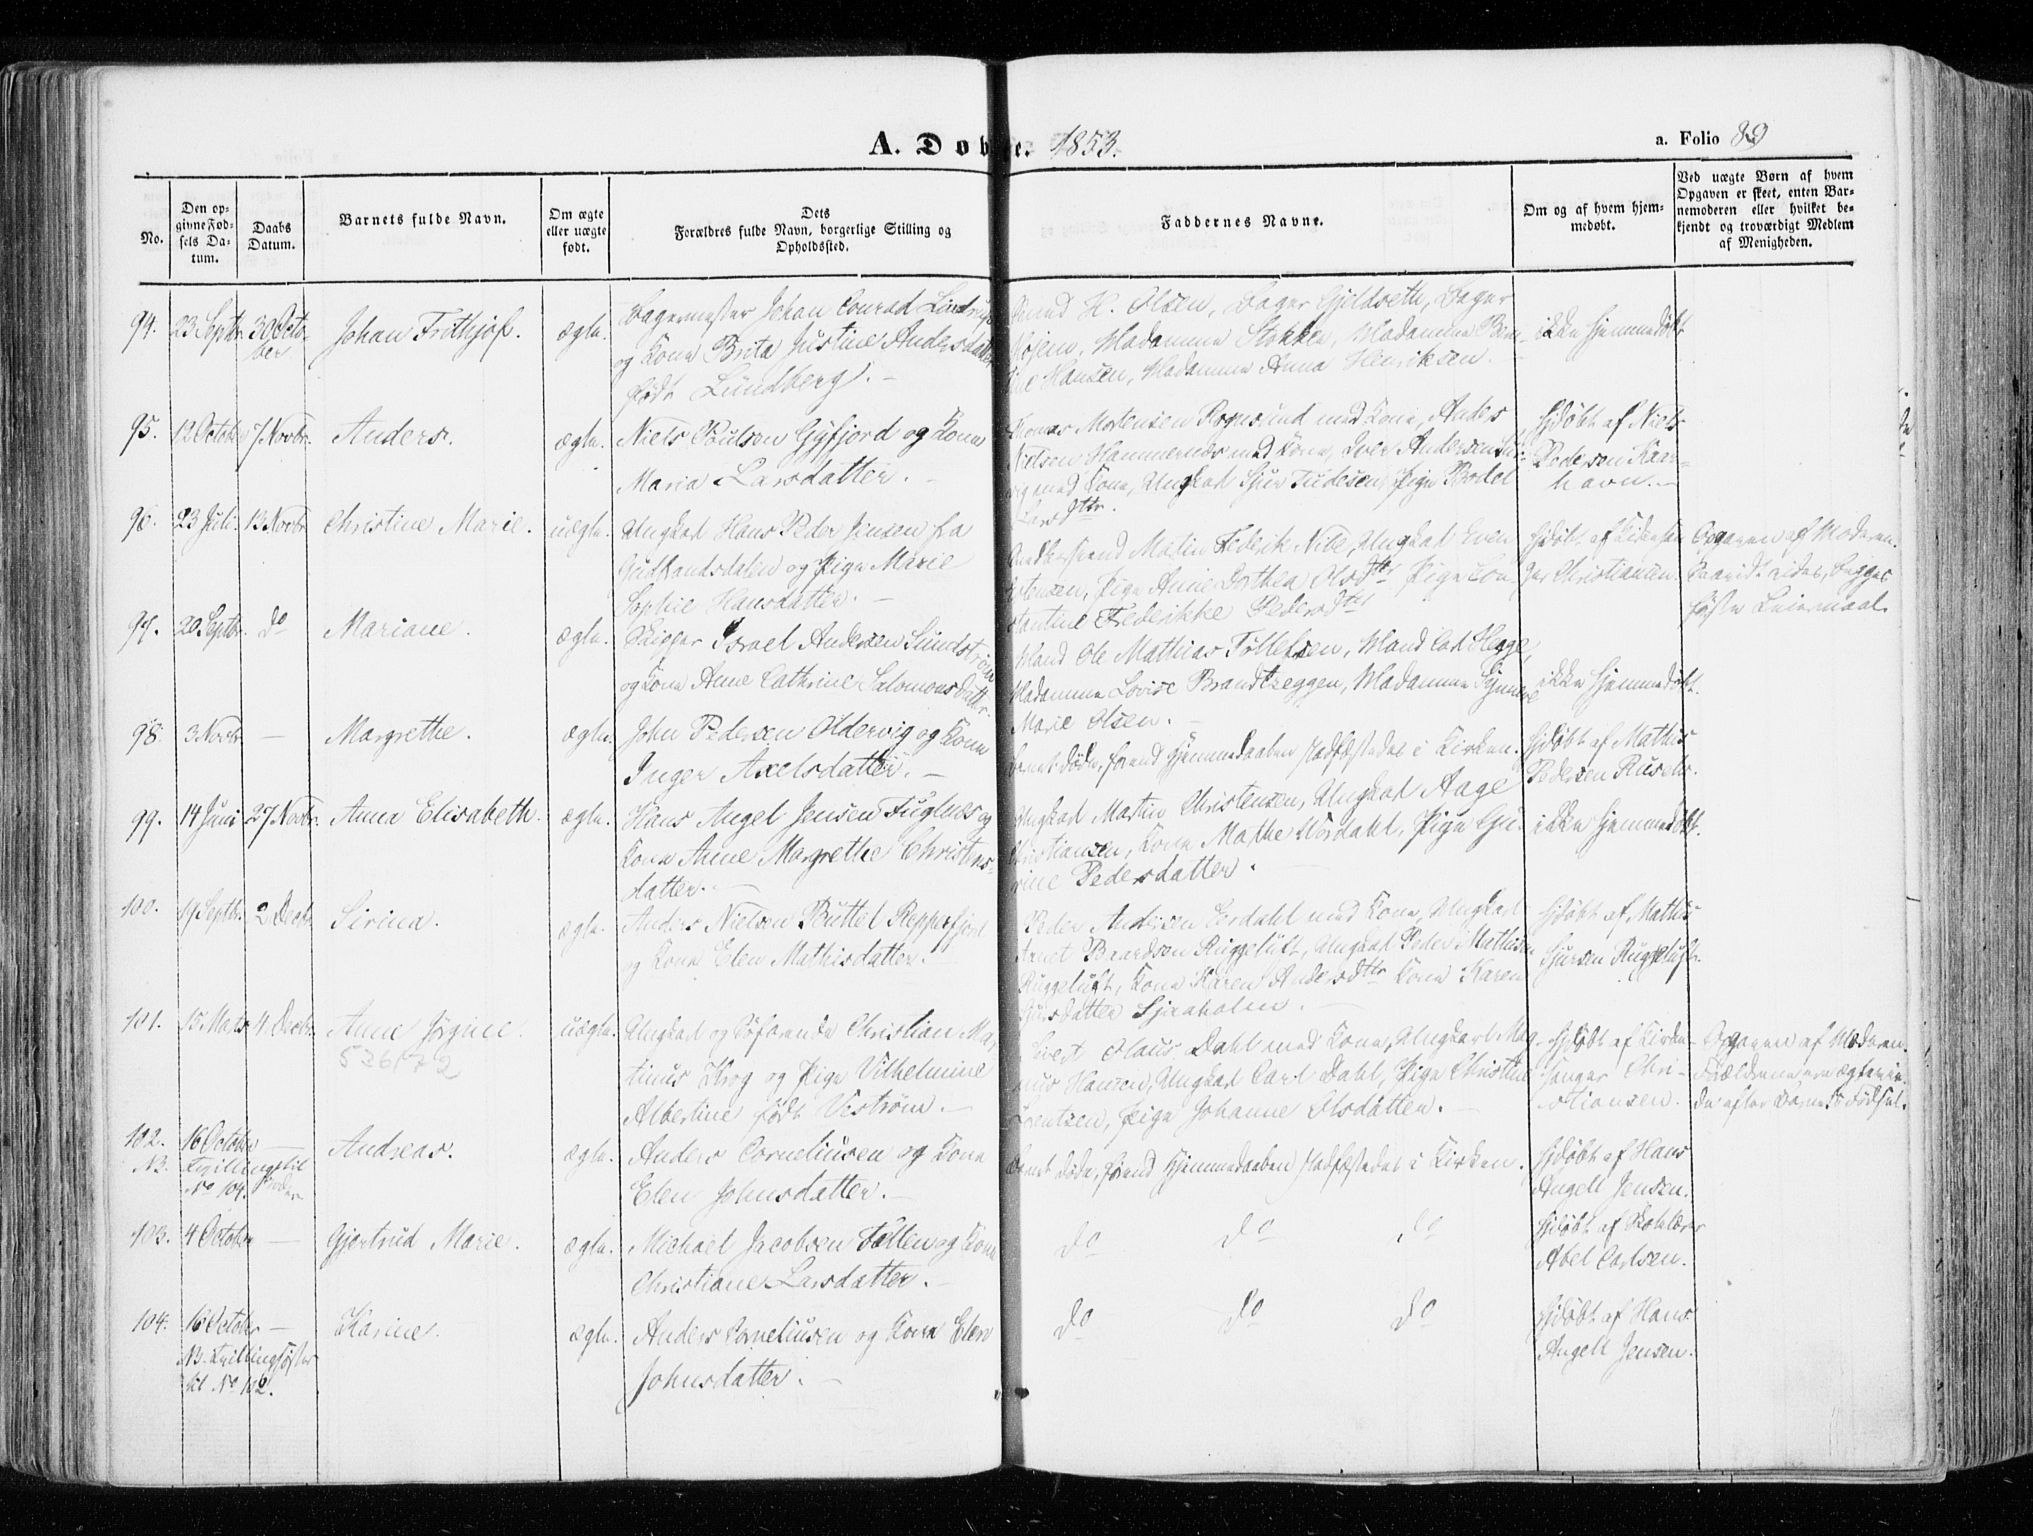 A. Døbte. 1853.
a. Folio 89
No.
Den op-
givne Fød-
sels Da-
tum.
Daabs
Datum.
Barnets fulde Navn.
Om ægte
eller uægte
født.
Dets
Forældres fulde Navn, borgerlige Stilling og
Opholdssted.
Faddernes Navne.
Om og af hvem hjem-
medøbt.
Ved uægte Børn af hvem
Opgaven er skeet, enten Bar-
nemoderen eller hvilket be-
kjendt og troværdigt Medlem
af Menigheden.
94. 23 Septbr. 30 Octo-
ber
Johan Frithjof.
ægte.
Bagermester Johan Conrad
og Kone Brita Justine Andersdatter
født Lündberg. -
H. Olsen, Bager Gjeldseth, Bager
Madamme Stokke, Madamme
Hansen, Madamme Anna Henriksen.
ikke hjemmedøbt
95. 12 October 7. Novbr.
Anders.
ægte.
Niels Poulsen Gyfjord og Kone
Maria Larsdatter. -
Mortensen med Kone, Anders
Nielsen Hammernæs med Kone, Iver Andersen
med Kone, Ungkarl Sjur Pige
Larsdttr.
hjdøbt af Niels
Pedersen Kaar-
havn. -
96. 23 Juli. 13 Novbr.
Christine Marie.
uægte.
Ungkarl Hans Peder Jensen fra
Gudbrandsdalen og Pige Marie
Sophie Hansdatter. -
Martin Frederik Ungkarl Even
Pige Anne Dorthea Olsdtr Pige Con-
stantine Frederikke Pedersdtr
hjdøbt af Kirkesan-
ger Christiansen.
Opgaven af Moderen.
Begges
første Leiermaal.
97. 20 Septbr. do
Mariane.
ægte.
Skipper Israel Andersen Sundstrøm
og Kone Anne Cathrine Salomonsdatter.
Mand Ole Mathias Tollefsen, Mand Carl Hegge,
Madamme Lovise Brandtzeggen, Madamme
Marie Olsen. -
ikke hjemmedøbt.
98. 3 Novbr. -
Margrethe.
ægte.
John Pedersen Oldervig og Kone
Inger Axelsdatter. -
Barnet døde, førend Hjemmedaaben stadfæstedes i Kirken.
hjdøbt af Mathis
Pedersen
99. 14 Juni 27 Novbr.
Anna Elisabeth.
ægte.
Hans Angel Jensen Fuglnes og
Kone Anne Margrethe Christens-
datter. -
Ungkarl Martin Christensen, Ungkarl Aage
Christiansen, Kone Mathe Pige Gu-
rine Pedersdatter.
ikke hjemmedøbt.
100. 19 Septbr. 2 Decbr.
Sirina.
ægte.
Anders Nielsen Büttel Repperfjord
og Kone Elen Mathisdatter. -
Peder Andersen med Kone, Ungkarl
Arnet Baardsen Ruggeluft, Ungkarl Peder Mathisen
Ruggeluft, Kone Karen Andersdtr Kone Karen
Sjaaholm. -
hjdøbt af Mathis
Sjursen Ruggeluft.
101. 15 Marts 4 Decbr.
Anne Jørgine.
536/72
uægte.
Ungkarl og Søfarende Christian Mar-
tinus Krog og Pige Vilhelmine
Albertine født Vestrøm. -
Hans Dahl med Kone, Ungkarl Mag-
nus Hansen, Ungkarl Carl Dahl, Pige Christine
Lorentzen, Pige Johanne Olsdatter. -
hjdøbt af Kirke-
sanger Chri-
stiansen.
Opgaven af Moderen.
Forældrene ere ægtevie-
de efter Barnets Fødsel.
102. 16 October -
NB. Tvillingbroder til
No 104.
Andreas.
ægte.
Anders Corneliusen og Kone
Elen Johnsdatter. -
Barnet døde, førend Hjemmedaaben stadfæstedes i Kirken.
hjdøbt af Hans
Angell Jensen.
103. 4 October -
Gjertrud Marie.
ægte.
Michael Jacobsen Fallen og Kone
Christiane Larsdatter. -
do do do
hjdøbt af Skolelærer
Abel Carlsen.
104. 16 October -
NB. Tvillingsøster
til No 102.
Karine.
ægte.
Anders Corneliusen og Kone Elen
Johnsdatter. -
do do do
hjdøbt af Hans
Angell Jensen.